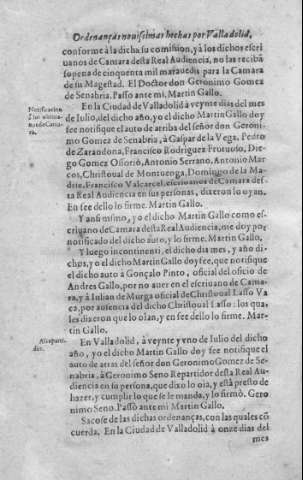 Ordenanças nouissimas hechas por Valladolid,
conforme à la dicha su comission, y à los dichos escri
uanos de Camara desta Real Audiencia, no las reciba
so pena de cinquenta mil marauedis para la Camara
de su Magestad. El Doctor don Geronimo Gomez
de Senabria. Passò ante mi. Martin Gallo.
Notificacion
En la Ciudad de Valladolid à veynte dias del mes
de Iulio, del dicho año, yo el dicho Martin Gallo doy
fee notifique el auto de arriba del señor don Geroni-
mo Gomez de Senabria, à Gaspar de la Vega, Pedro
de Zarandona, Francisco Rodriguez Proaño, Die
go Gomez Ossorio, Antonio Serrano, Antonio Mar
cos, Christoual de Montuenga, Domingo de la Ma-
dre, Francisco Valcarcel, escriuanos de Camara des-
ta Real Audiencia en sus personas, dixeron lo oyan.
En fee dello lo firme. Martin Gallo.
Y ansimismo, yo el dicho Martin Gallo como es-
criuano de Camara desta Real Audiencia, me doy por
notificado del dicho auto, y lo firme. Martin Gallo.
Y luego incontinenti, el dicho dia mes, y año di-
chos, yo el dicho Martin Gallo doy fee, que notifique
el dicho auto à Gonçalo Pinto, oficial del oficio de
Andres Gallo, por no auer en el escriuano de Cama-
ra, y à Iulian de Murga oficial de Christoual Lasso Va
ca, por ausencia del dicho Christoual Lasso: los qua-
les dixeron que lo oian, y en fee dello lo firme. Mar-
tin Gallo.
Al repartidor.
En Valladolid, à veynte y vno de Iulio del dicho
año, yo el dicho Martin Gallo doy fee notifique el
auto de atras del señor don Geronimo Gomez de Se-
nabria, à Geronimo Seno Repartidor desta Real Au-
diencia en su persona, que dixo lo oia, y està presto de
hazer, y cumplir lo que se le manda, y lo firmò. Gero
nimo Seno. Passò ante mi Martin Gallo.
Sacose de las dichas ordenanças, con las quales cõ
cuerda. En la Ciudad de Valladolid à onze dias del
mes